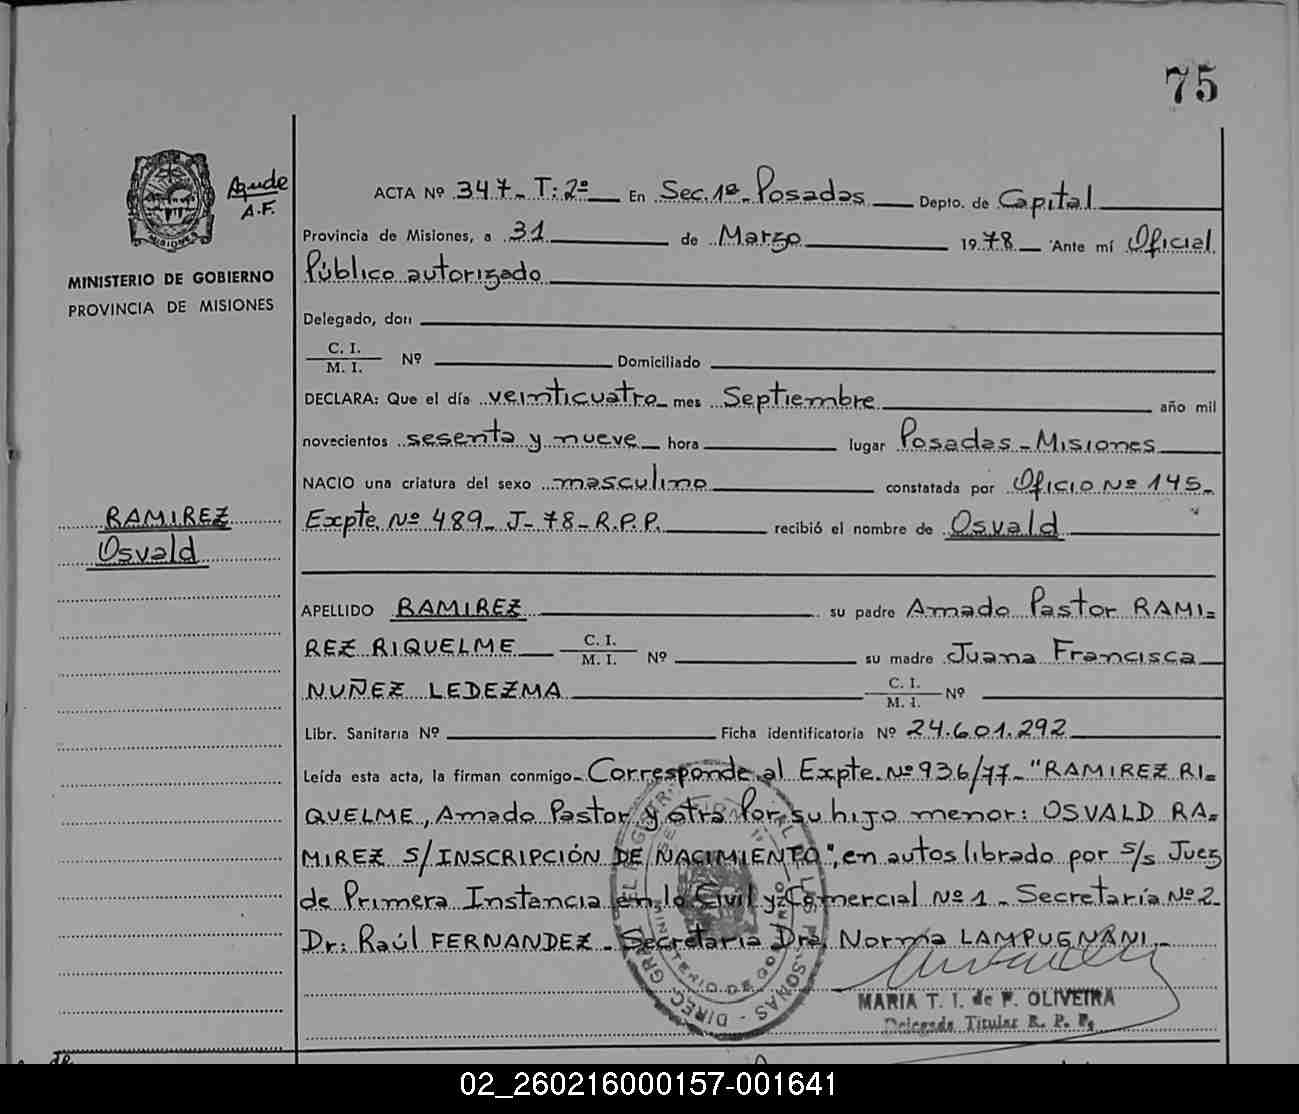 75
Agude
A.F.
MISIONES
MINISTERIO DE GOBIERNO
PROVINCIA DE MISIONES
RAMIREZ
Osvald
ACTA Nº 347- T: 2º En Sec. 1ª- Posadas Depto. de Capital
Provincia de Misiones, a 31 de Marzo 1978 Ante mí Oficial
Público autorizado
Delegado, don
C. I.
M. I. Nº Domiciliado
DECLARA: Que el día veinticuatro mes Septiembre año mil
novecientos sesenta y nueve hora lugar Posadas - Misiones
NACIO una criatura del sexo masculino constatada por Oficio Nº 145-
Expte. Nº 489- J- 78- R.P.P. recibió el nombre de Osvald
APELLIDO RAMIREZ su padre Amado Pastor RAMI=
REZ RIQUELME C. I. M. I. Nº su madre Juana Francisca
NUÑEZ LEDEZMA C. I. M. I. Nº
Libr. Sanitaria Nº Ficha identificatoria Nº 24.601.292
Leída esta acta, la firman conmigo- Corresponde al Expte. Nº 936/77- "RAMIREZ RI=
QUELME, Amado Pastor y otra Por su hijo menor: OSVALD RA=
MIREZ S/INSCRIPCIÓN DE NACIMIENTO", en autos librado por S/S Juez
de Primera Instancia en lo Civil y Comercial Nº 1 - Secretaría Nº 2-
Dr: Raúl FERNANDEZ - Secretaria Dra. Norma LAMPUGNANI.-
MARIA T. I. de F. OLIVEIRA
Delegada Titular R. P. P.
02_260216000157-001641